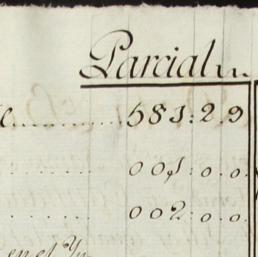 Parcial
583:2.9
001:0.0.
002:0.0.
en el